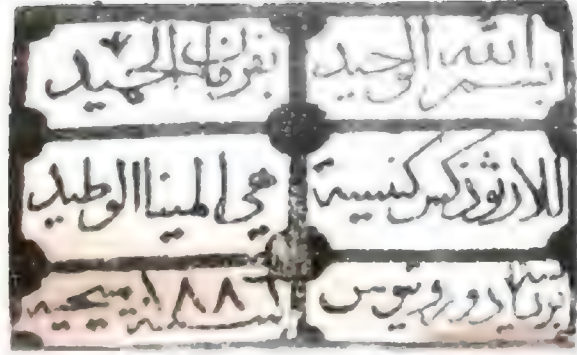 بسم الله الوحيد بفرمان الحميد
للارثوذكس كنيسة هي المينا الوطيد
دوروتيوس سنة ١٨٨٦ مسيحية